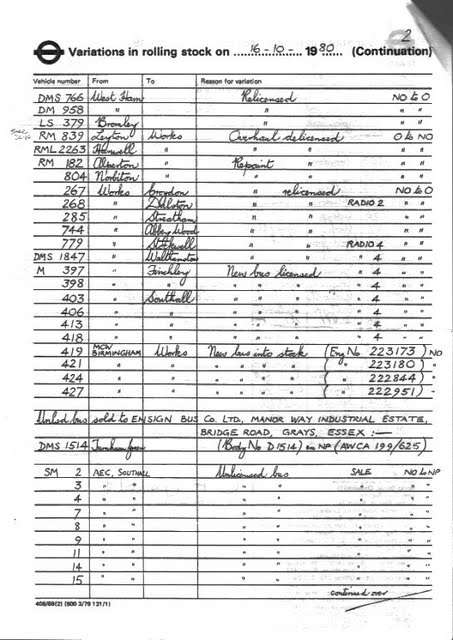 2
Variations in rolling stock on 16-10- 1980 (Continuation)
Vehicle number From To Reason for variation
DMS 766 West Ham Relicensed NO to O
DM 958 " " " "
LS 379 Bromley " " "
RM 839 Leyton Works Overhaul delicensed O to NO
RML 2263 Hanwell " " " " "
RM 182 Alperton " Repaint " " "
804 Norbiton " " " " "
267 Works Croydon " relicensed NO to O
268 " Dalston " " RADIO 2 " "
285 " Streatham " " " "
744 " Abbey Wood " " " "
779 " Stockwell " " RADIO 4 " "
DMS 1847 " Walthamstow " " " 4 " "
M 397 " Finchley New bus licensed " 4 " "
398 " " " " " " 4 " "
403 " Southall " " " " 4 " "
406 " " " " " " 4 " "
413 " " " " " " 4 " "
418 " " " " " " 4 - "
419 MCW BIRMINGHAM Works New bus into stock (Eng No 223173) NO
421 " " " " " " ( " 223180) "
424 " " " " " " ( " 222844) "
427 " " " " " " ( " 222951) "
Unlsd bus sold to ENSIGN BUS CO. LTD., MANOR WAY INDUSTRIAL ESTATE,
BRIDGE ROAD, GRAYS, ESSEX :—
DMS 1514 Turnham Green (Body No D1514) in NP (AWCA 199/625)
SM 2 AEC, SOUTHALL Unlicensed bus SALE NO to NP
3 " " " " " " "
4 " " " " " " "
7 " " " " " " "
8 " " " " " " "
9 " " " " " " "
11 " " " " " " "
14 " " " " " " "
15 " " " " " " "
continued over
408/69(2) (500 3/79 121/1)